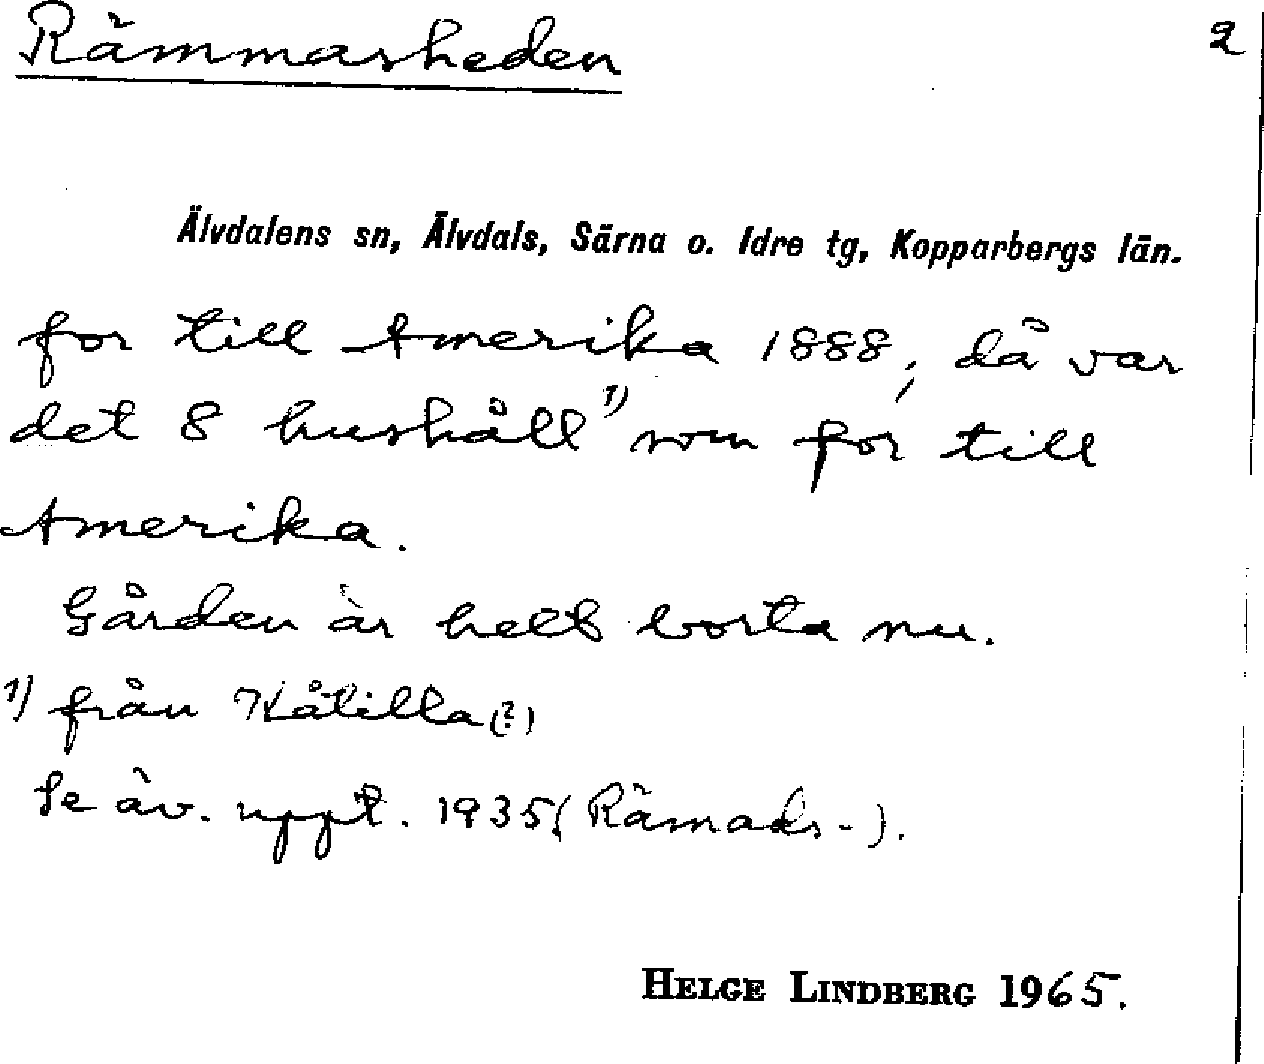 Rämmasheden 2
Älvdalens sn, Älvdals, Särna o. Idre tg, Kopparbergs län.
for till Amerika 1888; då var
det 8 hushåll 1) som for till
Amerika.
Gården är helt borta nu.
1) från Kåtilla (?)
Se äv. uppt. 1935 (Rämads-).
HELGE LINDBERG 1965.